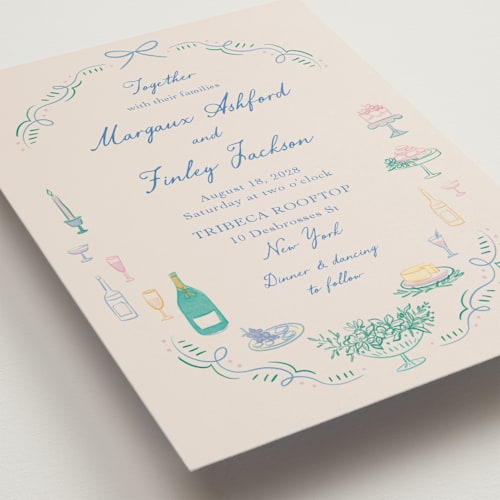 Together
with their families
Margaux Ashford
and
Finley Jackson
August 18, 2028
Saturday at two o'clock
TRIBECA ROOFTOP
10 Desbrosses St
New York
Dinner & dancing
to follow